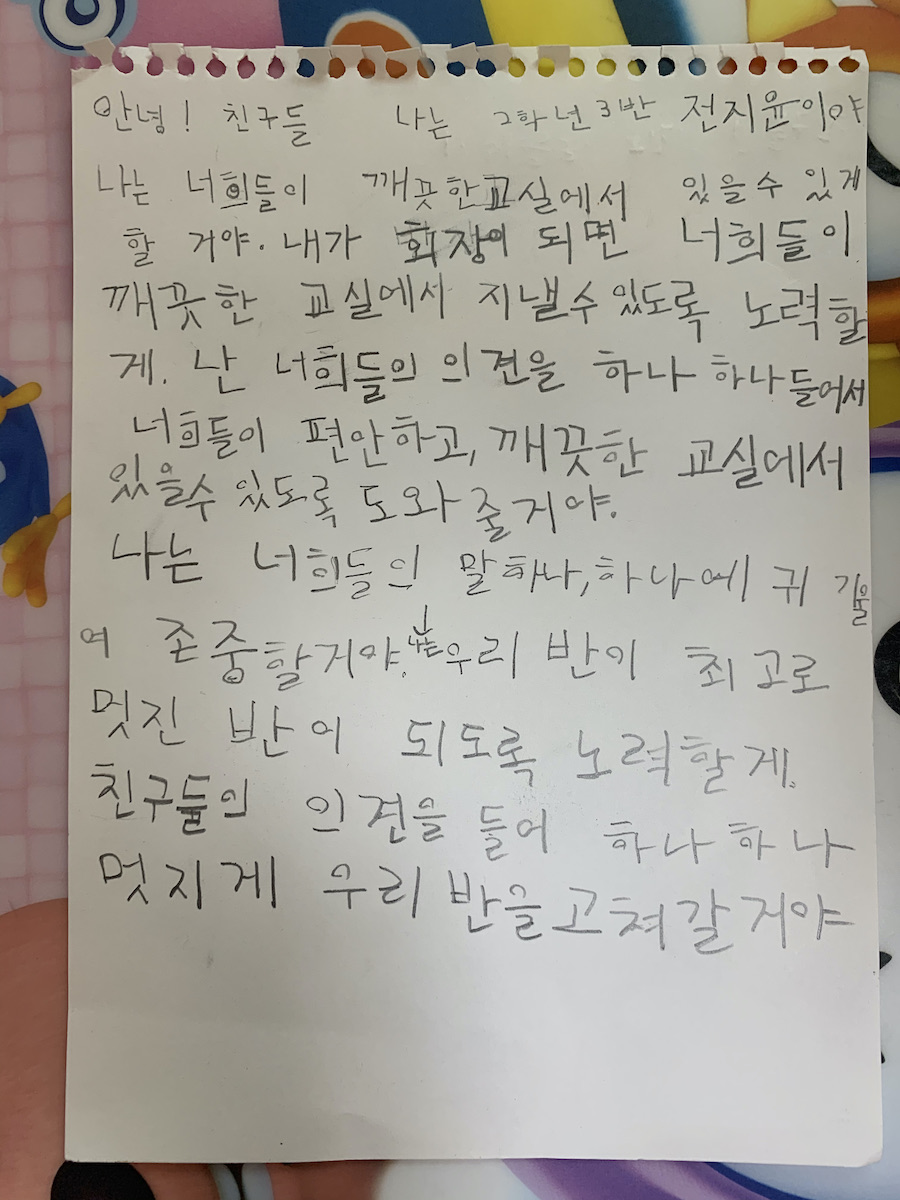 안녕! 친구들 나는 2학년 3반 전지윤이야
나는 너희들이 깨끗한 교실에서 있을 수 있게
할 거야. 내가 회장이 되면 너희들이
깨끗한 교실에서 지낼 수 있도록 노력할
게. 난 너희들의 의견을 하나 하나 들어서
너희들이 편안하고, 깨끗한 교실에서
있을수 있도록 도와 줄거야.
나는 너희들의 말 하나, 하나에 귀 기울
여 존중할거야. 나는 우리 반이 최고로
멋진 반이 되도록 노력할게.
친구들의 의견을 들어 하나 하나
멋지게 우리 반을 고쳐갈 거야